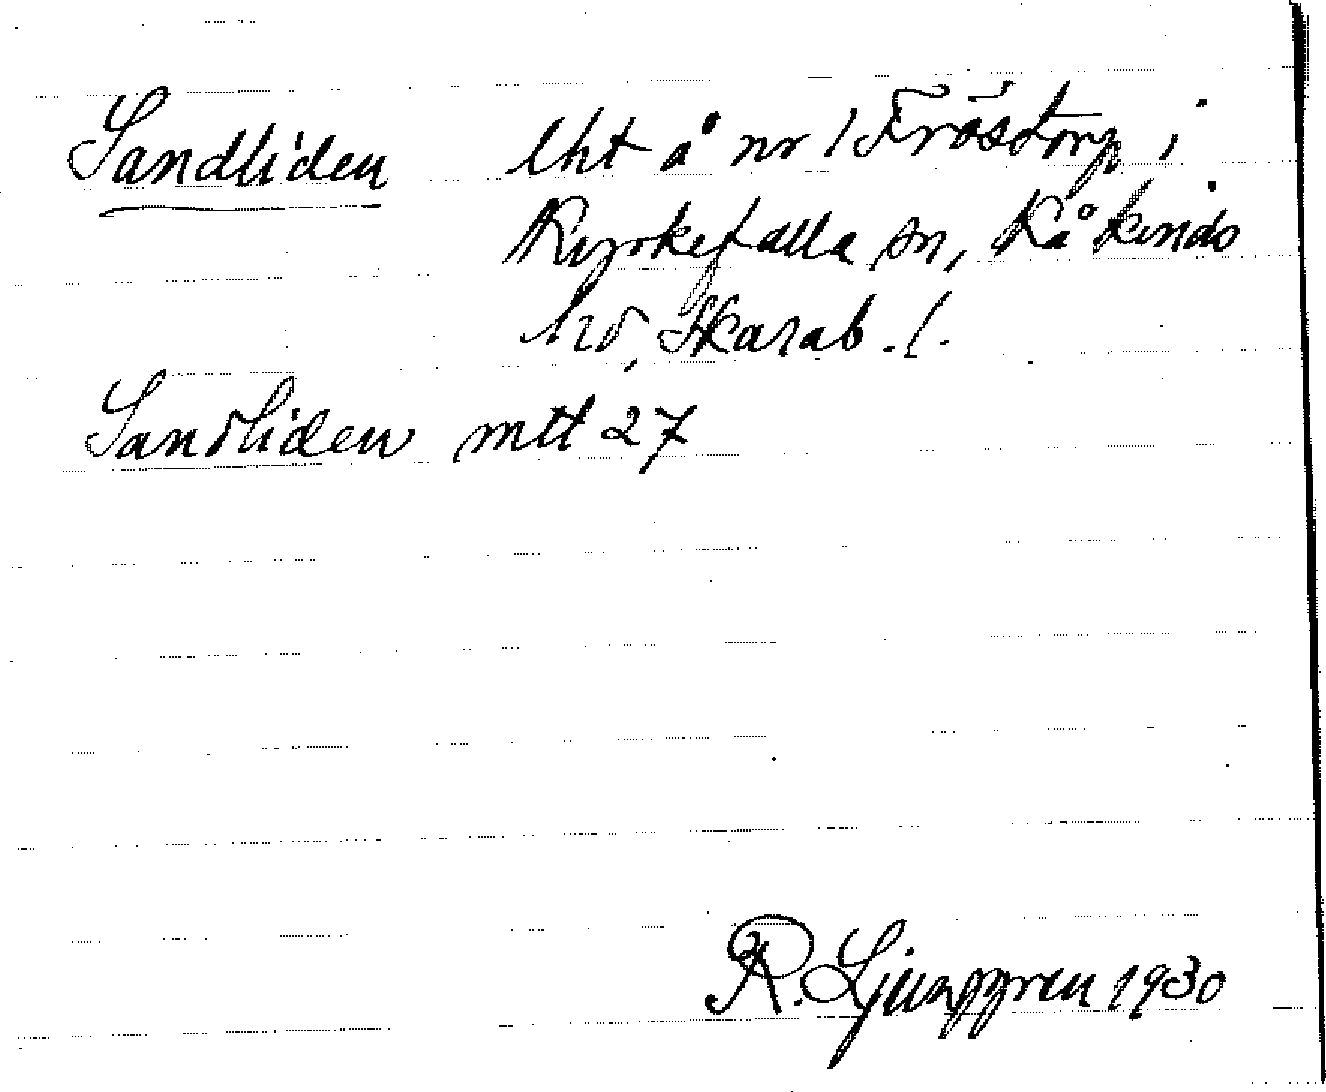 Sandliden lht å nr 1 Fröstorp i
Kyrkefalla sn, Kåkinds
hd, Skarab. l.
Sandliden mtt 27
R. Ljunggren 1930